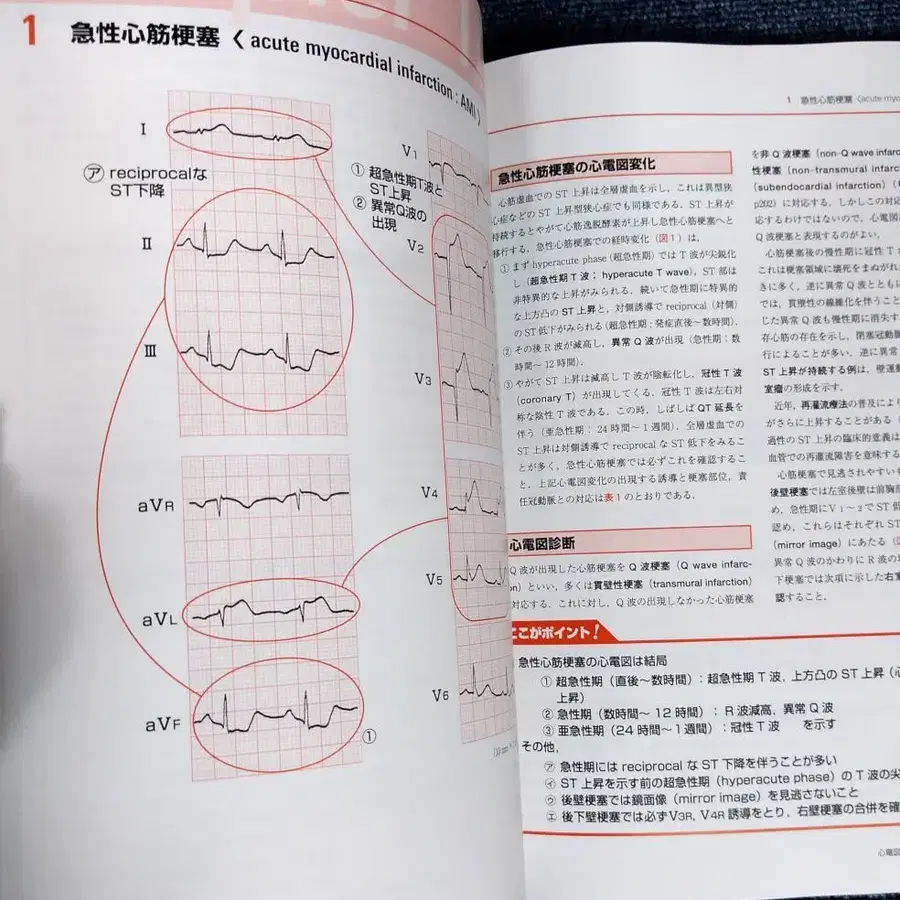 1 急性心筋梗塞〈acute myocardial infarction : AMI〉
I
㋐ reciprocalな
ST下降
II
III
aVR
aVL
aVF
①
V1
① 超急性期T波と
ST上昇
② 異常Q波の
出現
V2
V3
V4
V5
V6
1 急性心筋梗塞〈acute myo
急性心筋梗塞の心電図変化
心筋虚血での ST 上昇は全層虚血を示し，これは異型狭
心症などの ST 上昇型狭心症でも同様である．ST 上昇が
持続するとやがて心筋逸脱酵素が上昇し急性心筋梗塞へと
移行する．急性心筋梗塞での経時変化（図1）は，
① まず hyperacute phase（超急性期）では T 波が尖鋭化
し（超急性期 T 波；hyperacute T wave），ST 部は
非特異的な上昇がみられる．続いて急性期に特異的
な上方凸の ST 上昇と，対側誘導で reciprocal（対側）
の ST 低下がみられる（超急性期：発症直後〜数時間），
② その後 R 波が減高し，異常 Q 波が出現（急性期：数
時間〜 12 時間），
③ やがて ST 上昇は減高し T 波が陰転化し，冠性 T 波
（coronary T）が出現してくる．冠性 T 波は左右対
称な陰性 T 波である．この時，しばしば QT 延長を
伴う（亜急性期：24 時間〜 1 週間）．全層虚血での
ST 上昇は対側誘導で reciprocal な ST 低下をみるこ
とが多く，急性心筋梗塞では必ずこれを確認するこ
と．上記心電図変化の出現する誘導と梗塞部位，責
任冠動脈との対応は表1のとおりである．
心電図診断
Q 波が出現した心筋梗塞を Q 波梗塞（Q wave infarc-
on）といい，多くは貫壁性梗塞（transmural infarction）
対応する．これに対し，Q 波の出現しなかった心筋梗塞
を非 Q 波梗塞（non-Q wave infarc
性梗塞（non-transmural infarc
（subendocardial infarction）（
p202）に対応する．しかしこの対応
応するわけではないので，心電図
Q 波梗塞と表現するのがよい．
心筋梗塞後の慢性期に冠性 T
これは梗塞領域に壊死をまぬがれ
きに多く，逆に異常 Q 波とともに
では，貫壁性の線維化を伴うこと
じた異常 Q 波も慢性期に消失す
存心筋の存在を示し，閉塞冠動脈
行によることが多い．逆に異常
ST 上昇が持続する例は，壁運動
室瘤の形成を示す．
近年，再灌流療法の普及により
がさらに上昇することがある（
過性の ST 上昇の臨床的意義は
血管での再灌流障害を意味する
心筋梗塞で見逃されやすい
後壁梗塞では左室後壁は前胸部
め，急性期にV1〜3でST低
認め，これらはそれぞれ ST
（mirror image）にあたる（
異常 Q 波のかわりに R 波の
下梗塞では次項に示した右室
認すること．
ここがポイント！
急性心筋梗塞の心電図は結局
① 超急性期（直後〜数時間）：超急性期 T 波，上方凸の ST 上昇（
上昇）
② 急性期（数時間〜 12 時間）：R 波減高，異常 Q 波
③ 亜急性期（24 時間〜 1 週間）：冠性 T 波 を示す
その他，
㋐ 急性期には reciprocal な ST 下降を伴うことが多い
㋑ ST 上昇を示す前の超急性期（hyperacute phase）の T 波の尖
㋒ 後壁梗塞では鏡面像（mirror image）を見逃さないこと
㋓ 後下壁梗塞では必ずV3R, V4R 誘導をとり，右壁梗塞の合併を確
心電図